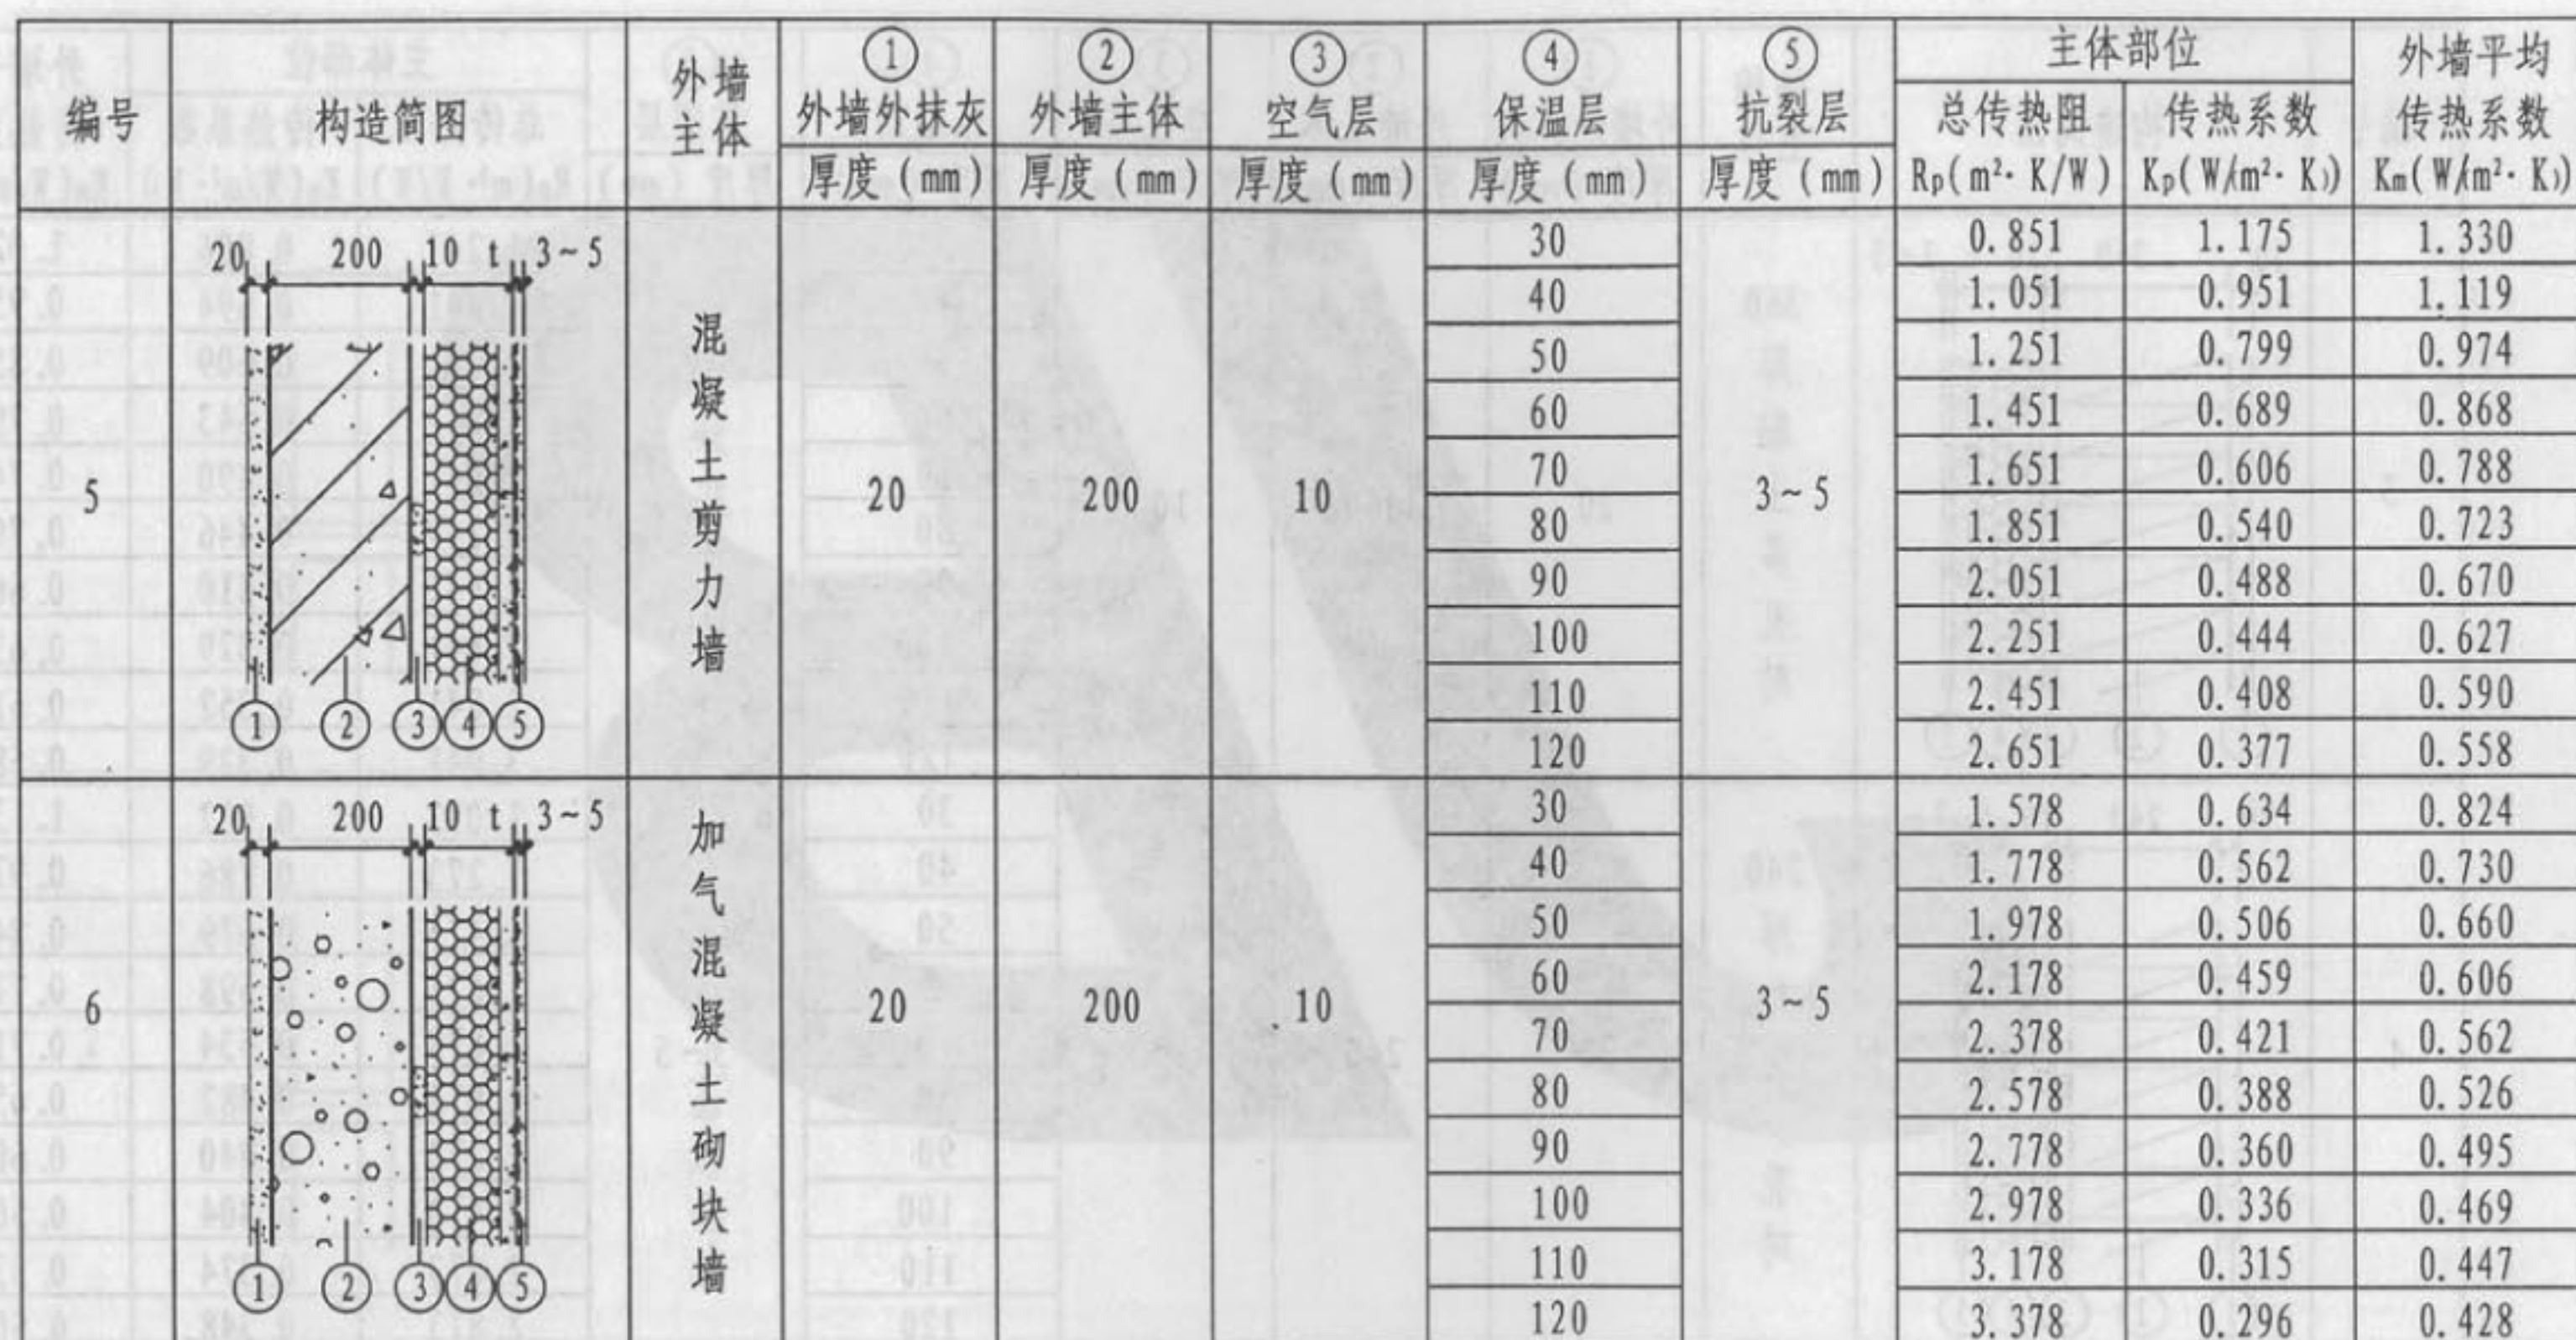 编号 构造简图 外墙主体 ① 外墙外抹灰 ② 外墙主体 ③ 空气层 ④ 保温层 ⑤ 抗裂层 主体部位 外墙平均传热系数
厚度(mm) 厚度(mm) 厚度(mm) 厚度(mm) 厚度(mm) 总传热阻 Rp(m²·K/W) 传热系数 Kp(W/(m²·K)) Km(W/(m²·K))
5
20 200 10 t 3~5
① ② ③ ④ ⑤
混凝土剪力墙
20 200 10
3~5
30 0.851 1.175 1.330
40 1.051 0.951 1.119
50 1.251 0.799 0.974
60 1.451 0.689 0.868
70 1.651 0.606 0.788
80 1.851 0.540 0.723
90 2.051 0.488 0.670
100 2.251 0.444 0.627
110 2.451 0.408 0.590
120 2.651 0.377 0.558
6
20 200 10 t 3~5
① ② ③ ④ ⑤
加气混凝土砌块墙
20 200 10
3~5
30 1.578 0.634 0.824
40 1.778 0.562 0.730
50 1.978 0.506 0.660
60 2.178 0.459 0.606
70 2.378 0.421 0.562
80 2.578 0.388 0.526
90 2.778 0.360 0.495
100 2.978 0.336 0.469
110 3.178 0.315 0.447
120 3.378 0.296 0.428